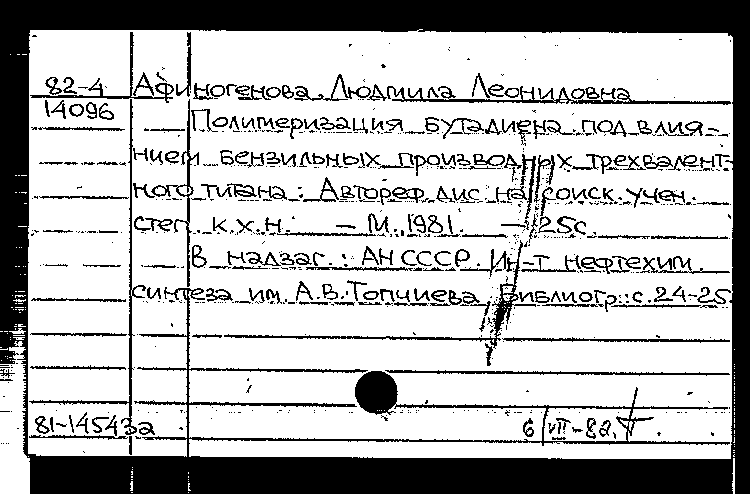 82-4 Афиногенова, Людмила Леонидовна
14096 Полимеризация бутадиена под влия-
нием бензильных производных трехвалент-
ного титана: Автореф. дис. на соиск. учен.
степ. к.х.н. — М., 1981. — 25с.
В надзаг.: АН СССР. Ин-т нефтехим.
синтеза им. А.В. Топчиева. Библиогр.: с. 24-25
81-14543а 6/VII-82.